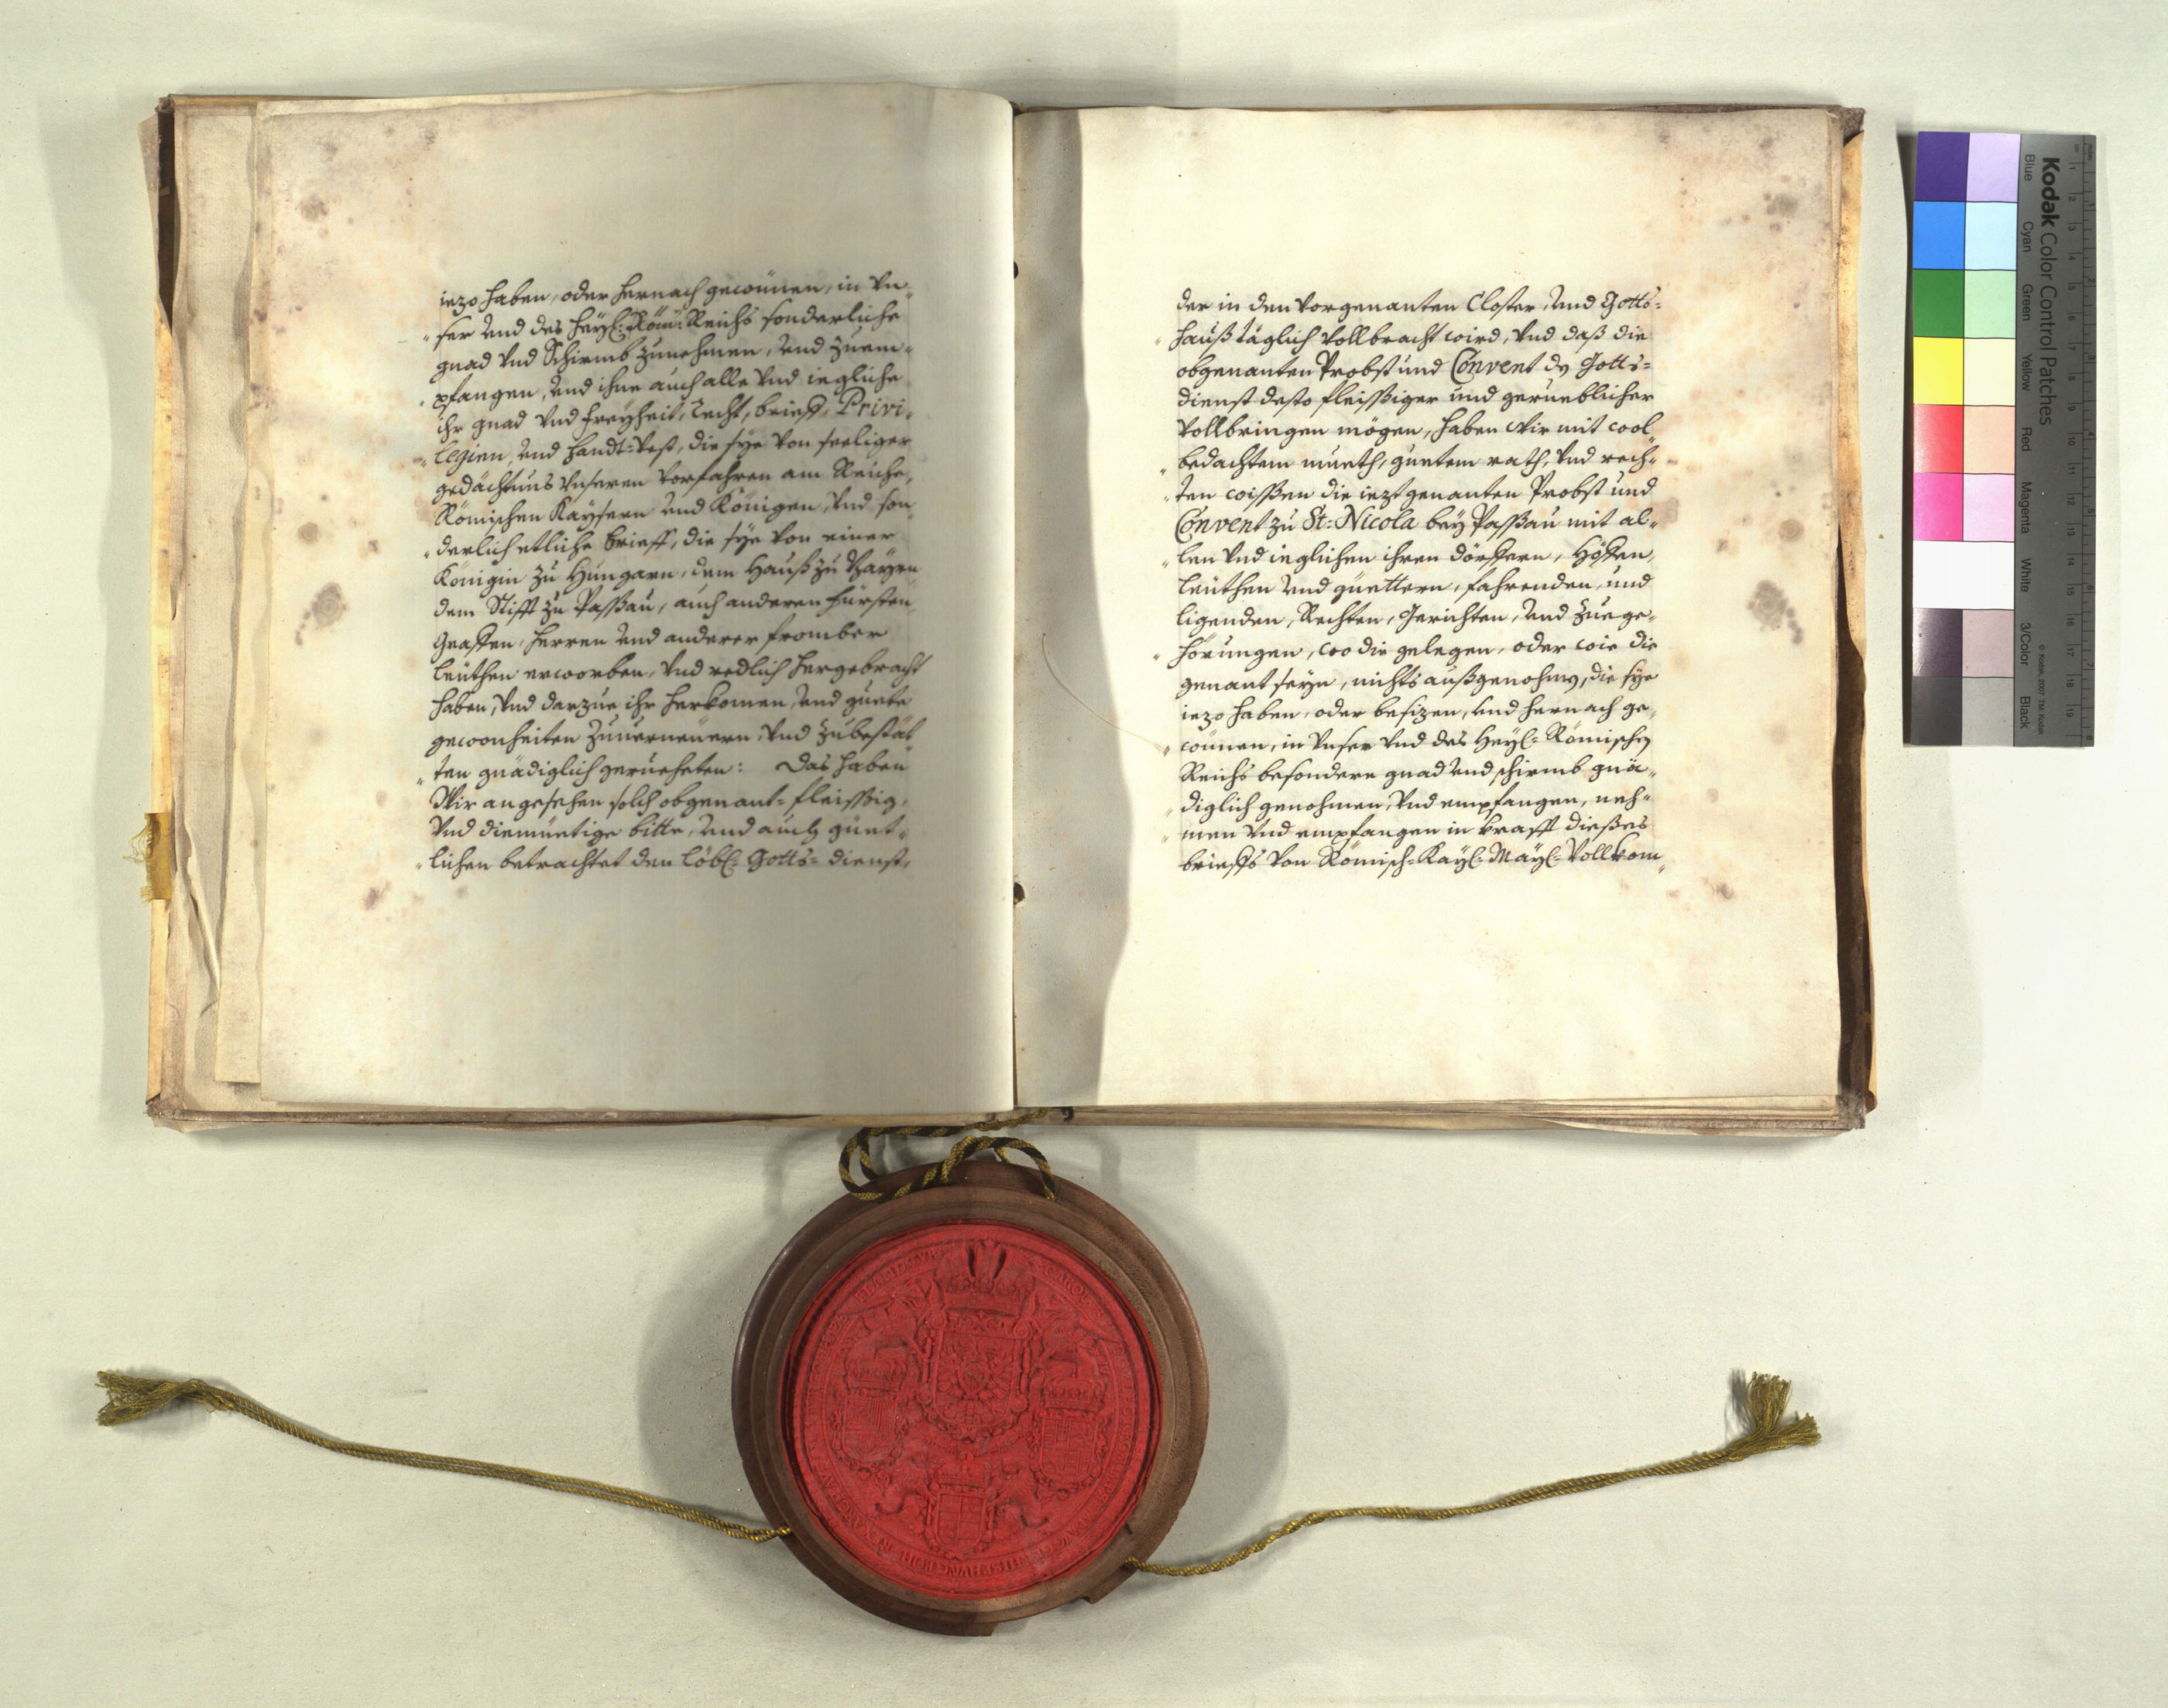 iezo haben, oder hernach gewünnen, in Vn-
ser Vnd des Heyl: Röm: Reichs sonderliche
gnad Vnd Schirmb zunehmen, Vnd zuem-
pfangen, Vnd ihne auch alle Vnd iegliche
ihr gnad Vnd freyheit, recht, brieff, Privi-
legien, Vnd handt-Vest, die sye Von seeliger
gedächtnus Vnseren Vorfahren am Reiche,
Römischen Kaysern Vnd Königen, Vnd son-
derlich etliche brieff, die sye Von einer
Königin zu Hungarn, dem Hauß zu Bayrn
dem Stifft zu Paßau, auch anderen fürsten,
Graffen, Herren Vnd anderer fromber
leüthen erworben, Vnd redlich hergebracht
haben, Vnd darzue ihr herkomen, Vnd guete
gewonheiten Zuuerneüern, Vnd Zubestät-
ten gnädiglich gerueheten: Das haben
Wir angesehen solch obgenant-fleissig,
Vnd diemüetige bitte, Vnd auch güet-
lichen betrachtet den löbl: Gotts-dienst,
der in den Vorgenanten Closter, Vnd Gotts-
hauß täglich Vollbracht wird, Vnd daß die
obgenanten Probst und Convent dz Gotts-
dienst desto fleissiger und gerueblicher
Vollbringen mögen, haben Wir mit wol
bedachtem mueth, guetem rath, Vnd rech-
ten wissen die iezt genanten Probst und
Convent zu St: Nicola bey Paßau mit al-
len Vnd ieglichen ihren dörffern, Höffen,
leüthen Vnd güettern, fahrenden, und
ligenden, Rechten, Gerichten, Vnd Zuege-
hörungen, wo die gelegen, oder wie die
genant seyn, nichts außgenohmen, die sye
iezo haben, oder besizen, Vnd hernach ge-
wünnen, in Vnser Vnd des Heyl: Römischen
Reichs besondere gnad Vnd schirmb gnä-
diglich genohmen, Vnd empfangen, neh-
men Vnd empfangen in krafft dießes
brieffs Von Römisch-Kayl: Mayl: Vollkom-
Kodak Color Control Patches
Blue Cyan Green Yellow Red Magenta White 3/Color Black